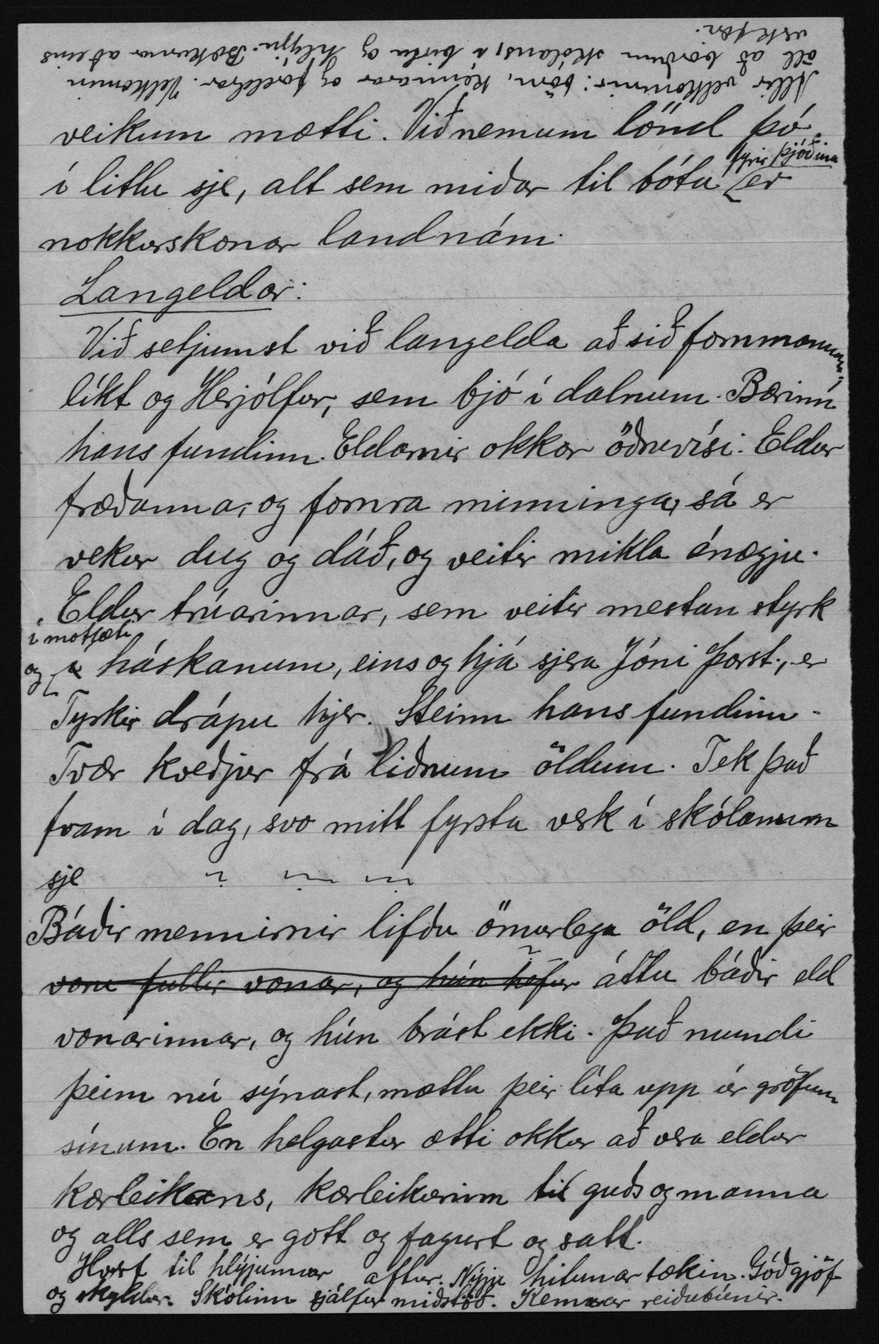 veikum mætti. Við nemum lönd þó
í litlu sje, alt sem miðar til bóta fyrir þjóðina er
nokkurskonar landnám.
Langeldar:
Við setjumst við langelda að sið fornmanna,
líkt og Herjólfur, sem bjó í dalnum. Bærinn
hans fundinn. Eldarnir okkar öðruvísi. Eldur
fræðanna, og fornra minninga, sá er
vekur dug og dáð, og veitir mikla ánægju.
Eldur trúarinnar, sem veitir mestan styrk
í mótlæti
og á háskanum, eins og hjá sjera Jóni Þorst., er
Tyrkir drápu hjer. Steinn hans fundinn.
Tvær kveðjur frá liðnum öldum. Tek það
fram í dag, svo mitt fyrsta verk í skólanum
sje
Báðir mennirnir lifðu ömurlega öld, en þeir
voru fullir vonar, og hún hefur áttu báðir eld
vonarinnar, og hún brást ekki. Það mundi
þeim nú sýnast, mættu þeir líta upp úr gröfum
sínum. En helgastur ætti okkur að vera eldur
kærleikans, kærleikurinn til guðs og manna
og alls sem er gott og fagurt og satt.
Horf til hlýjunnar aftur. Nýju hitunartækin. Góð gjöf
og skyldur. Skólinn sjálfur miðstöð. Kennarar reiðubúnir.
Allir velkomnir: börn, kennarar og foreldrar. Velkomin
öll að borðum skólans, í birtu og hlýju. Bækurnar aðeins
verkfær.